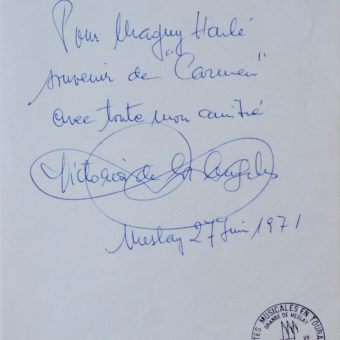 Pour Maguy Hanlé
souvenir de "Carmen"
avec toute mon amitié
Victoria de los Angeles
Meslay 27 Juin 1971
TES MUSICALES EN TOURA
GRANGE DE MESLAY